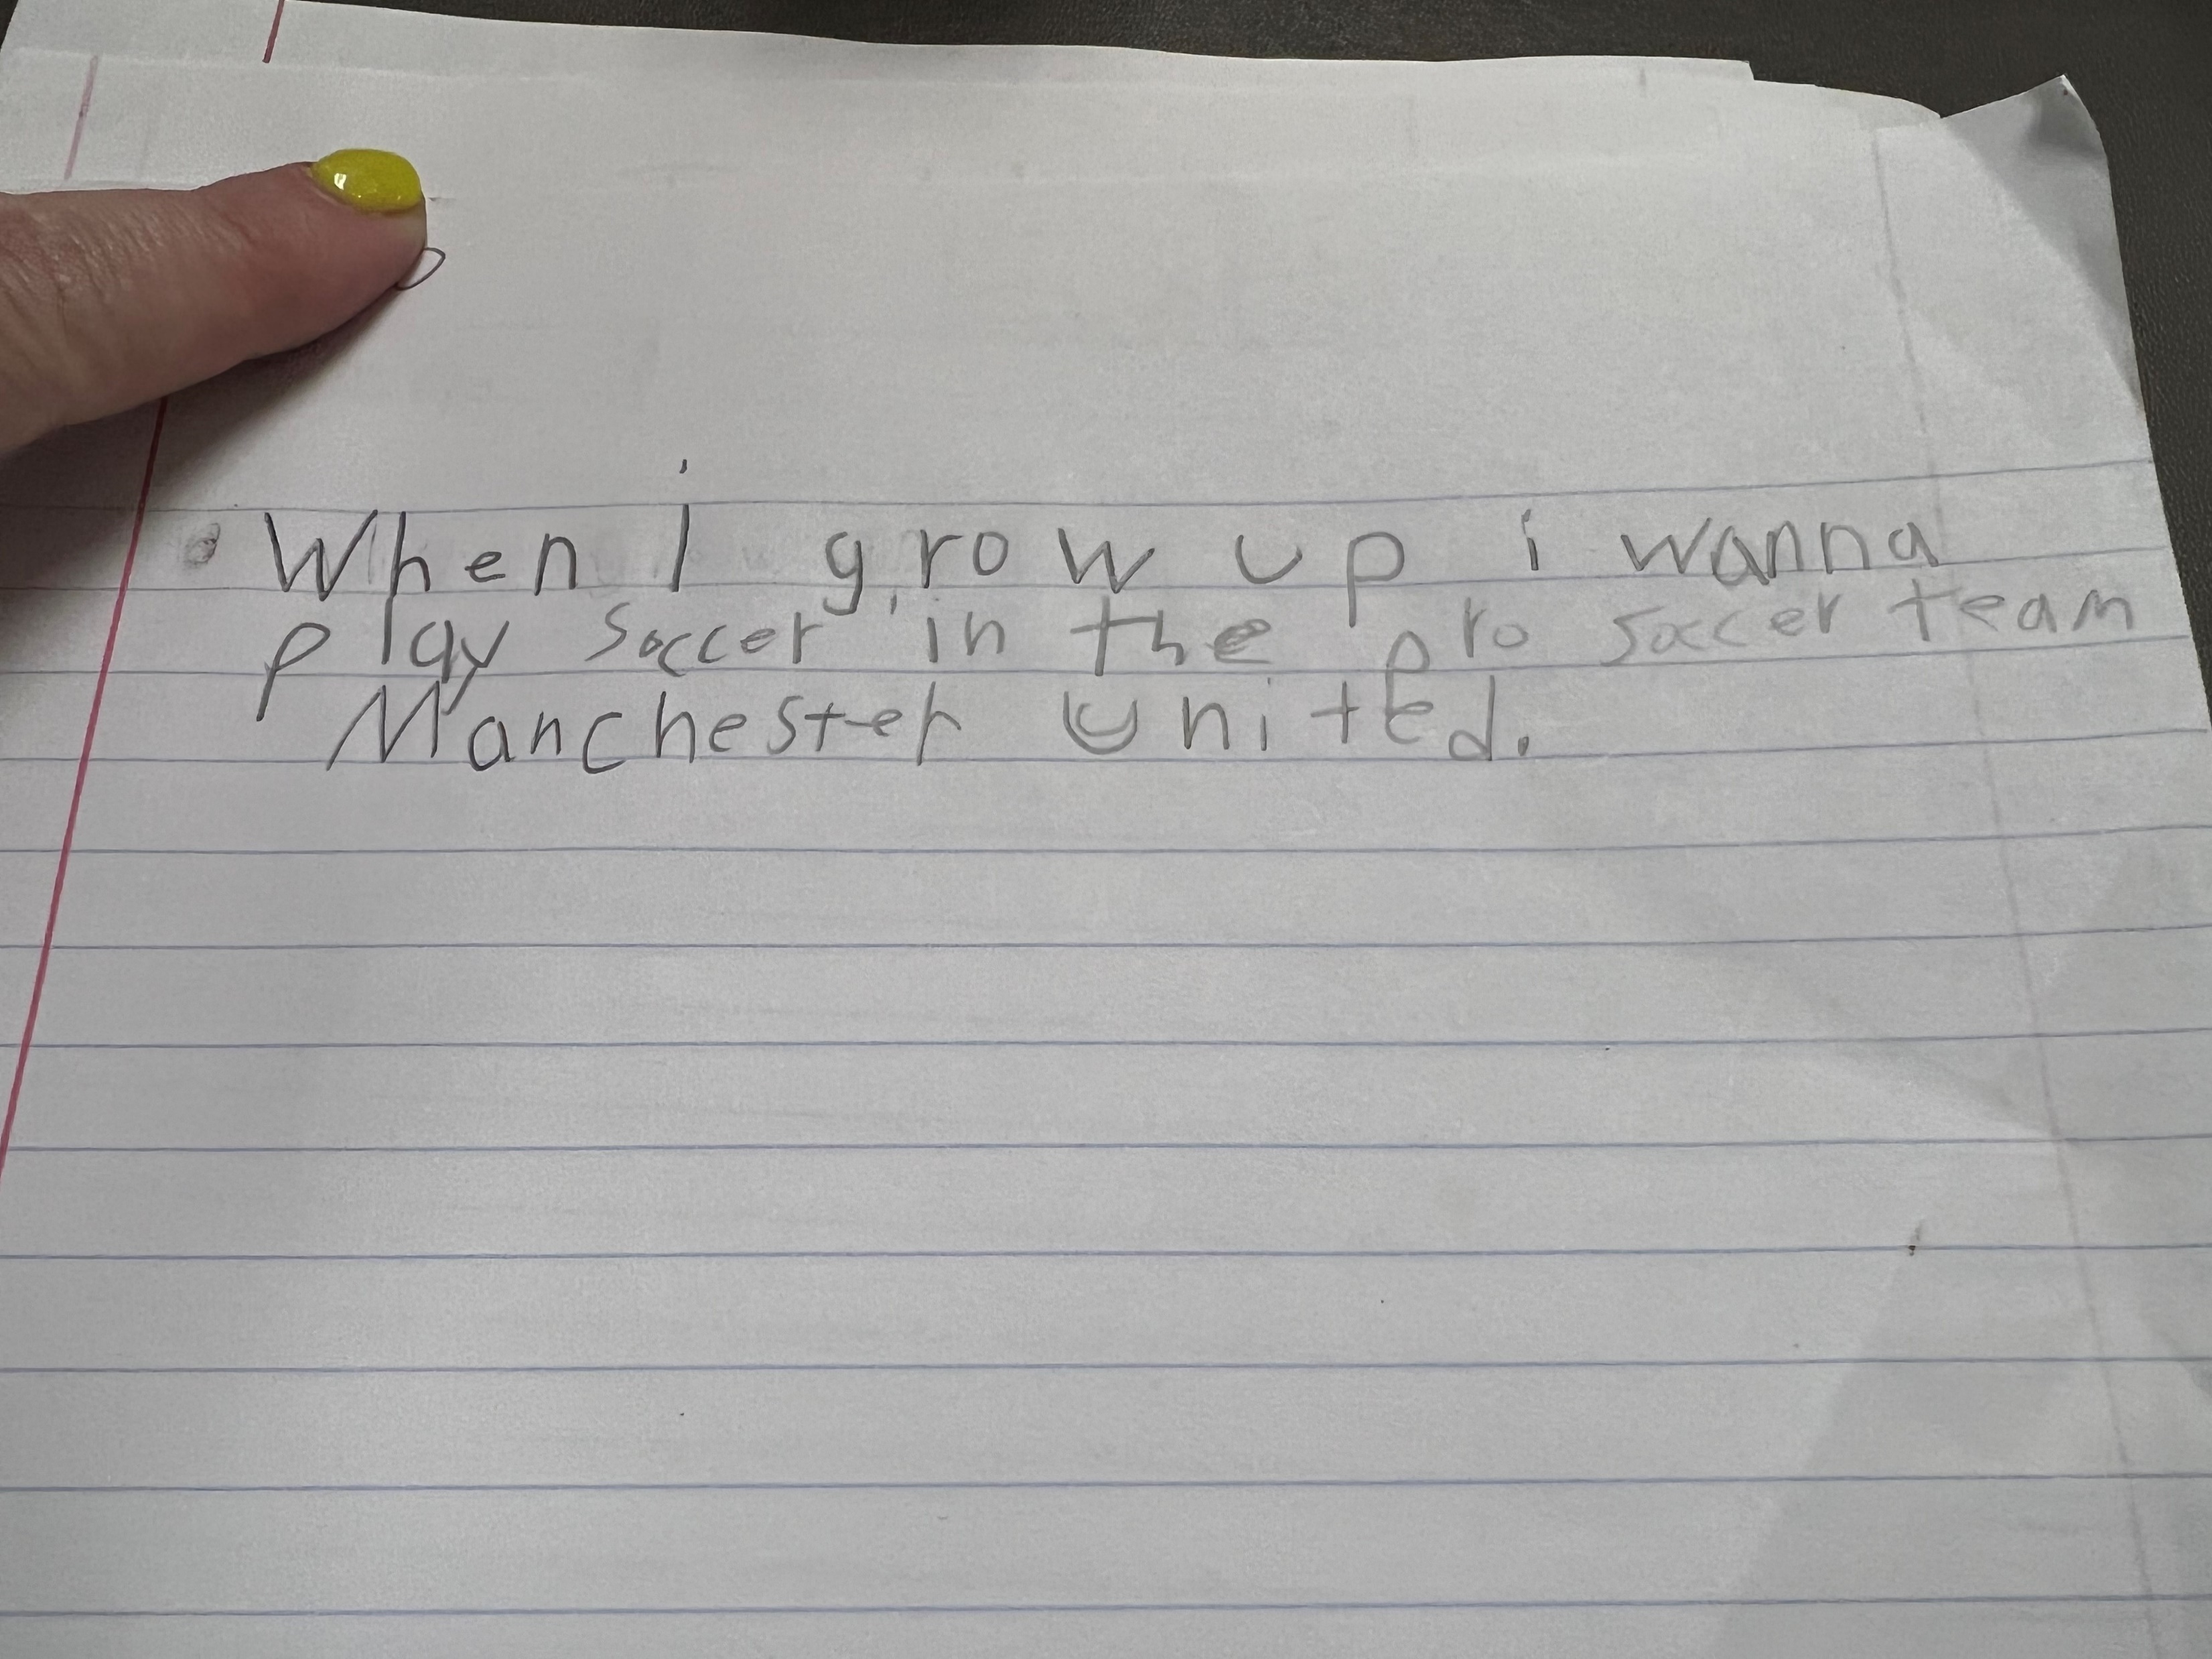 • When i grow up i wanna
play soccer in the pro soccer team
Manchester United.